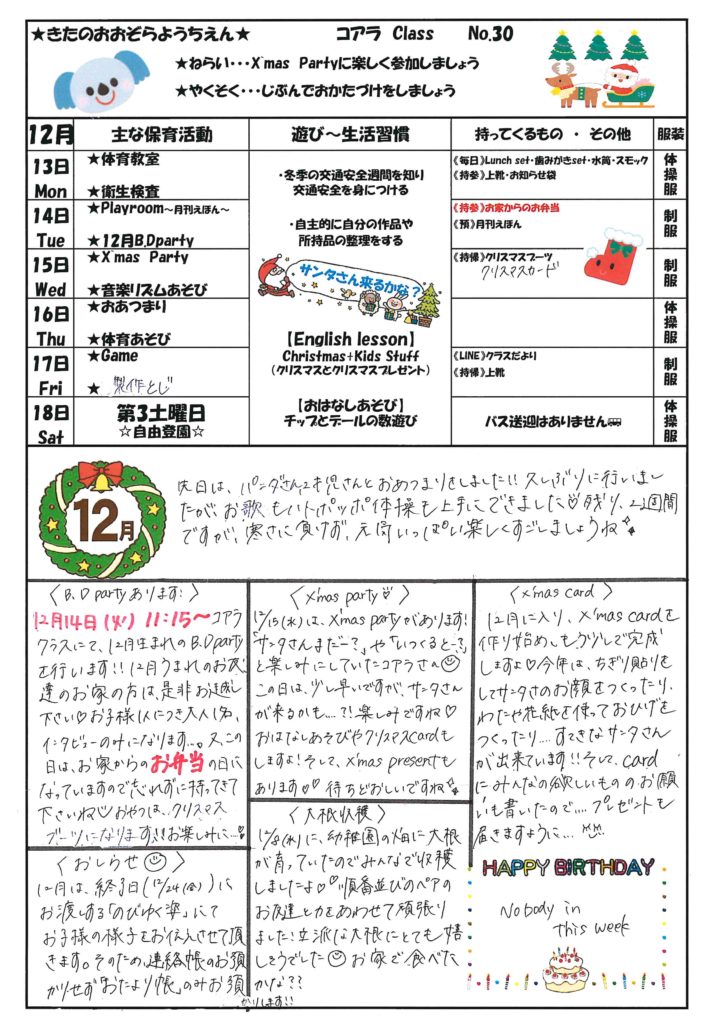 ★きたのおおぞらようちえん★ コアラ Class No.30
★ねらい・・・X'mas Partyに楽しく参加しましょう
★やくそく・・・じぶんでおかたづけをしましょう
12月 主な保育活動 遊び～生活習慣 持ってくるもの ・ その他 服装
13日 Mon
★体育教室
★衛生検査
14日 Tue
★Playroom～月刊えほん～
★12月B.Dparty
15日 Wed
★X'mas Party
★音楽リズムあそび
16日 Thu
★おあつまり
★体育あそび
17日 Fri
★Game
★ 製作とじ
18日 Sat
第3土曜日
☆自由登園☆
・冬季の交通安全週間を知り
交通安全を身につける
・自主的に自分の作品や
所持品の整理をする
サンタさん来るかな？
【English lesson】
Christmas+Kids Stuff
(クリスマスとクリスマスプレゼント)
【おはなしあそび】
チップとデールの数遊び
《毎日》Lunch set・歯みがきset・水筒・スモック
《持参》上靴・お知らせ袋
体操服
《持参》お家からのお弁当
《預》月刊えほん
制服
《持帰》クリスマスブーツ
クリスマスカード
制服
体操服
《LINE》クラスだより
《持帰》上靴
制服
バス送迎はありません
体操服
12月
先日は、パンダさん、2才児さんとおあつまりをしました!! 久しぶりに行いまし
たが、お歌も、いトーポッポ体操も上手にできました♡残り、2週間
ですが、寒さに負けず、元気いっぱい楽しくすごしましょうね
〈B.D partyあります!〉
12月14日(火) 11:15～コアラ
クラスにて、12月生まれのB.D party
を行います!! 12月うまれのお友
達のお家の方は、是非お越し
下さい♡お子様1人につき大人1名、
インタビューのみになります...。又、この
日は、お家からのお弁当の日に
なっていますので忘れずに持ってきて
下さいね♡おやつは、クリスマス
ブーツになります!!お楽しみに...♡
〈おしらせ☺〉
12月は、終了日(12/24(金))に
お渡しする「のびゆく姿」にて
お子様の様子をお伝えさせて頂
きます。そのため、連絡帳のお預
かりせず「おたより帳」のみお預
かりします!!
〈X'mas party♡〉
12/15(水)は、X'mas partyがあります!
「サンタさんまだー?」や「いつくると〜?」
と楽しみにしていたコアラさん☺
この日は、少し早いですが、サンタさん
が来るかも....?! 楽しみですね♡
おはなしあそびやクリスマスcardも
しますよ! そして、X'mas presentも
あります♡♡ 待ちどおしいですね
〈大根収穫〉
12/8(水)に、幼稚園の畑に大根
が育っていたのでみんなで収穫
しましたよ♡♡順番並びのペアの
お友達と力をあわせて頑張り
ました! 立派な大根にとても嬉
しそうでした☺ お家で食べた
かな??
〈X'mas card〉
12月に入り、X'mas cardを
作り始め、もう少しで完成
しますよ♡今年は、ちぎり貼りを
してサンタさんのお顔をつくったり、
わたや花紙を使っておひげを
つくったり....すてきなサンタさん
が出来ています!! そして、card
にみんなの欲しいもののお願
いも書いたので....プレゼントも
届きますように...
HAPPY BIRTHDAY
Nobody in
this week